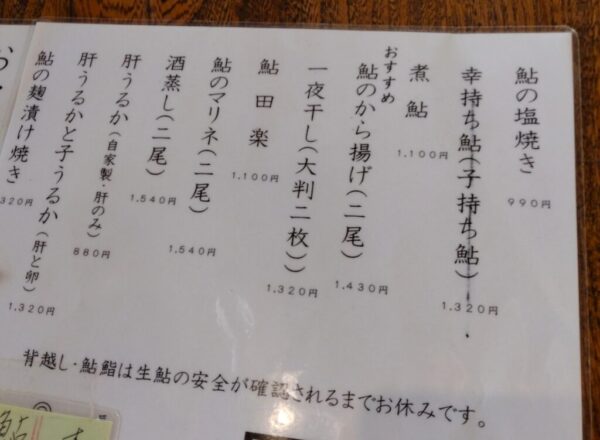 鮎の塩焼き 990円
幸持ち鮎(子持ち鮎) 1.320円
煮鮎 1.100円
おすすめ
鮎のから揚げ(二尾) 1.430円
一夜干し(大判二枚)) 1.320円
鮎田楽 1.100円
鮎のマリネ(二尾) 1.540円
酒蒸し(二尾) 1.540円
肝うるか(自家製・肝のみ) 880円
肝うるかと子うるか(肝と卵) 1.320円
鮎の麹漬け焼き 320円
背越し・鮎鮨は生鮎の安全が確認されるまでお休みです。
鮎